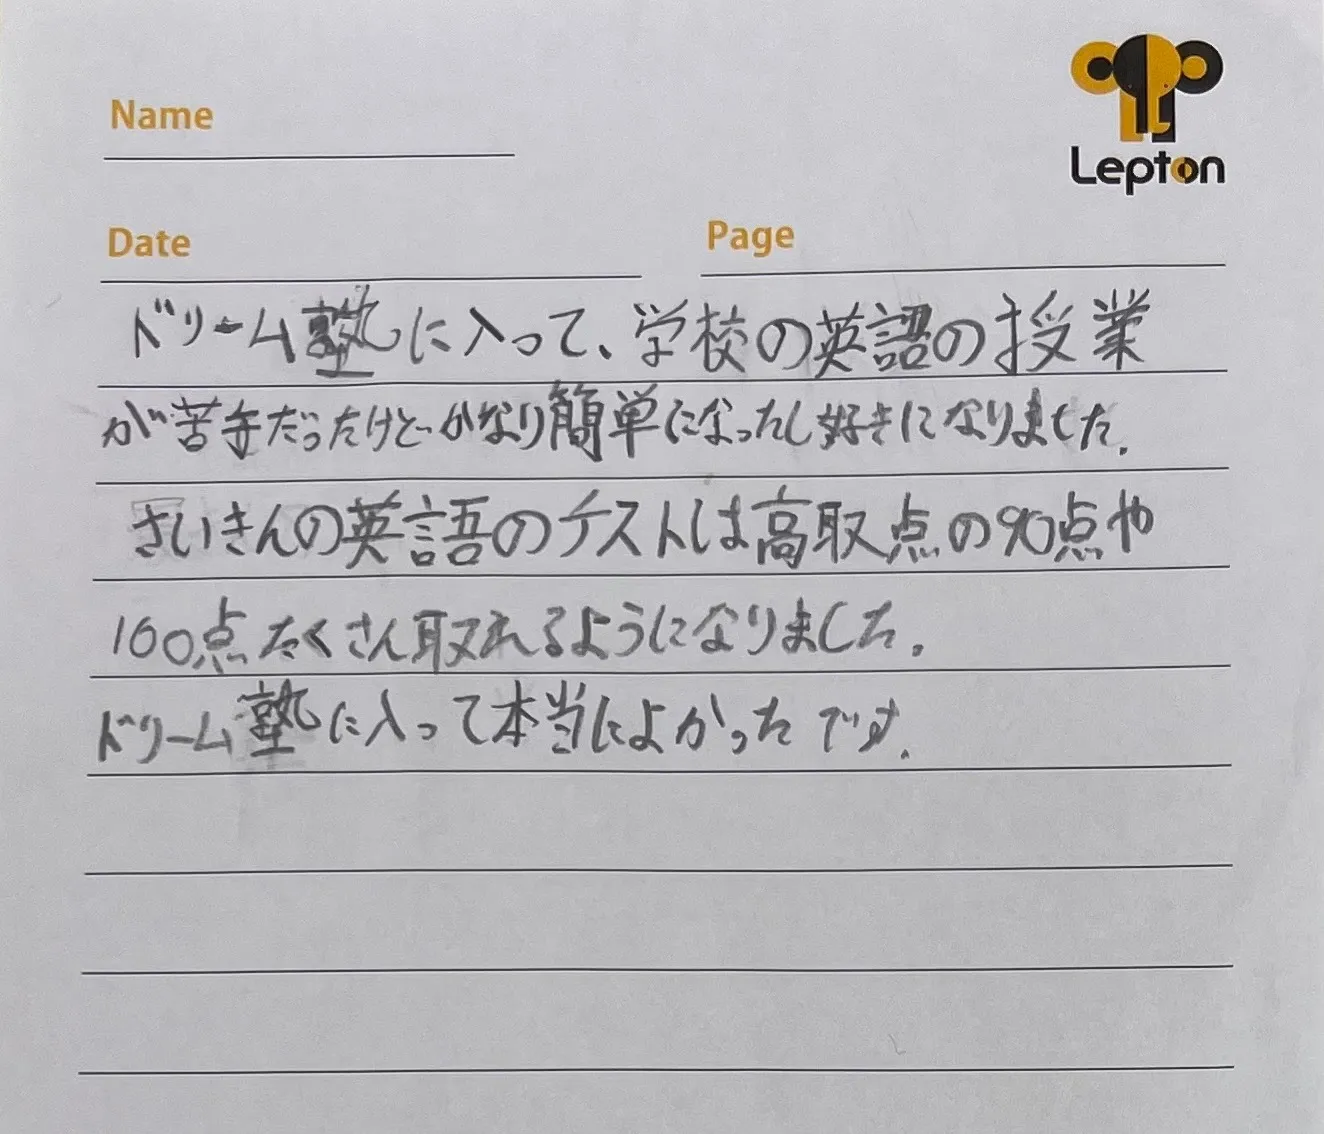 Name
Lepton
Date
Page
ドリーム塾に入って、学校の英語の授業
が苦手だったけどかなり簡単になったし好きになりました。
さいきんの英語のテストは高取点の90点や
100点たくさん取れるようになりました。
ドリーム塾に入って本当によかったです。